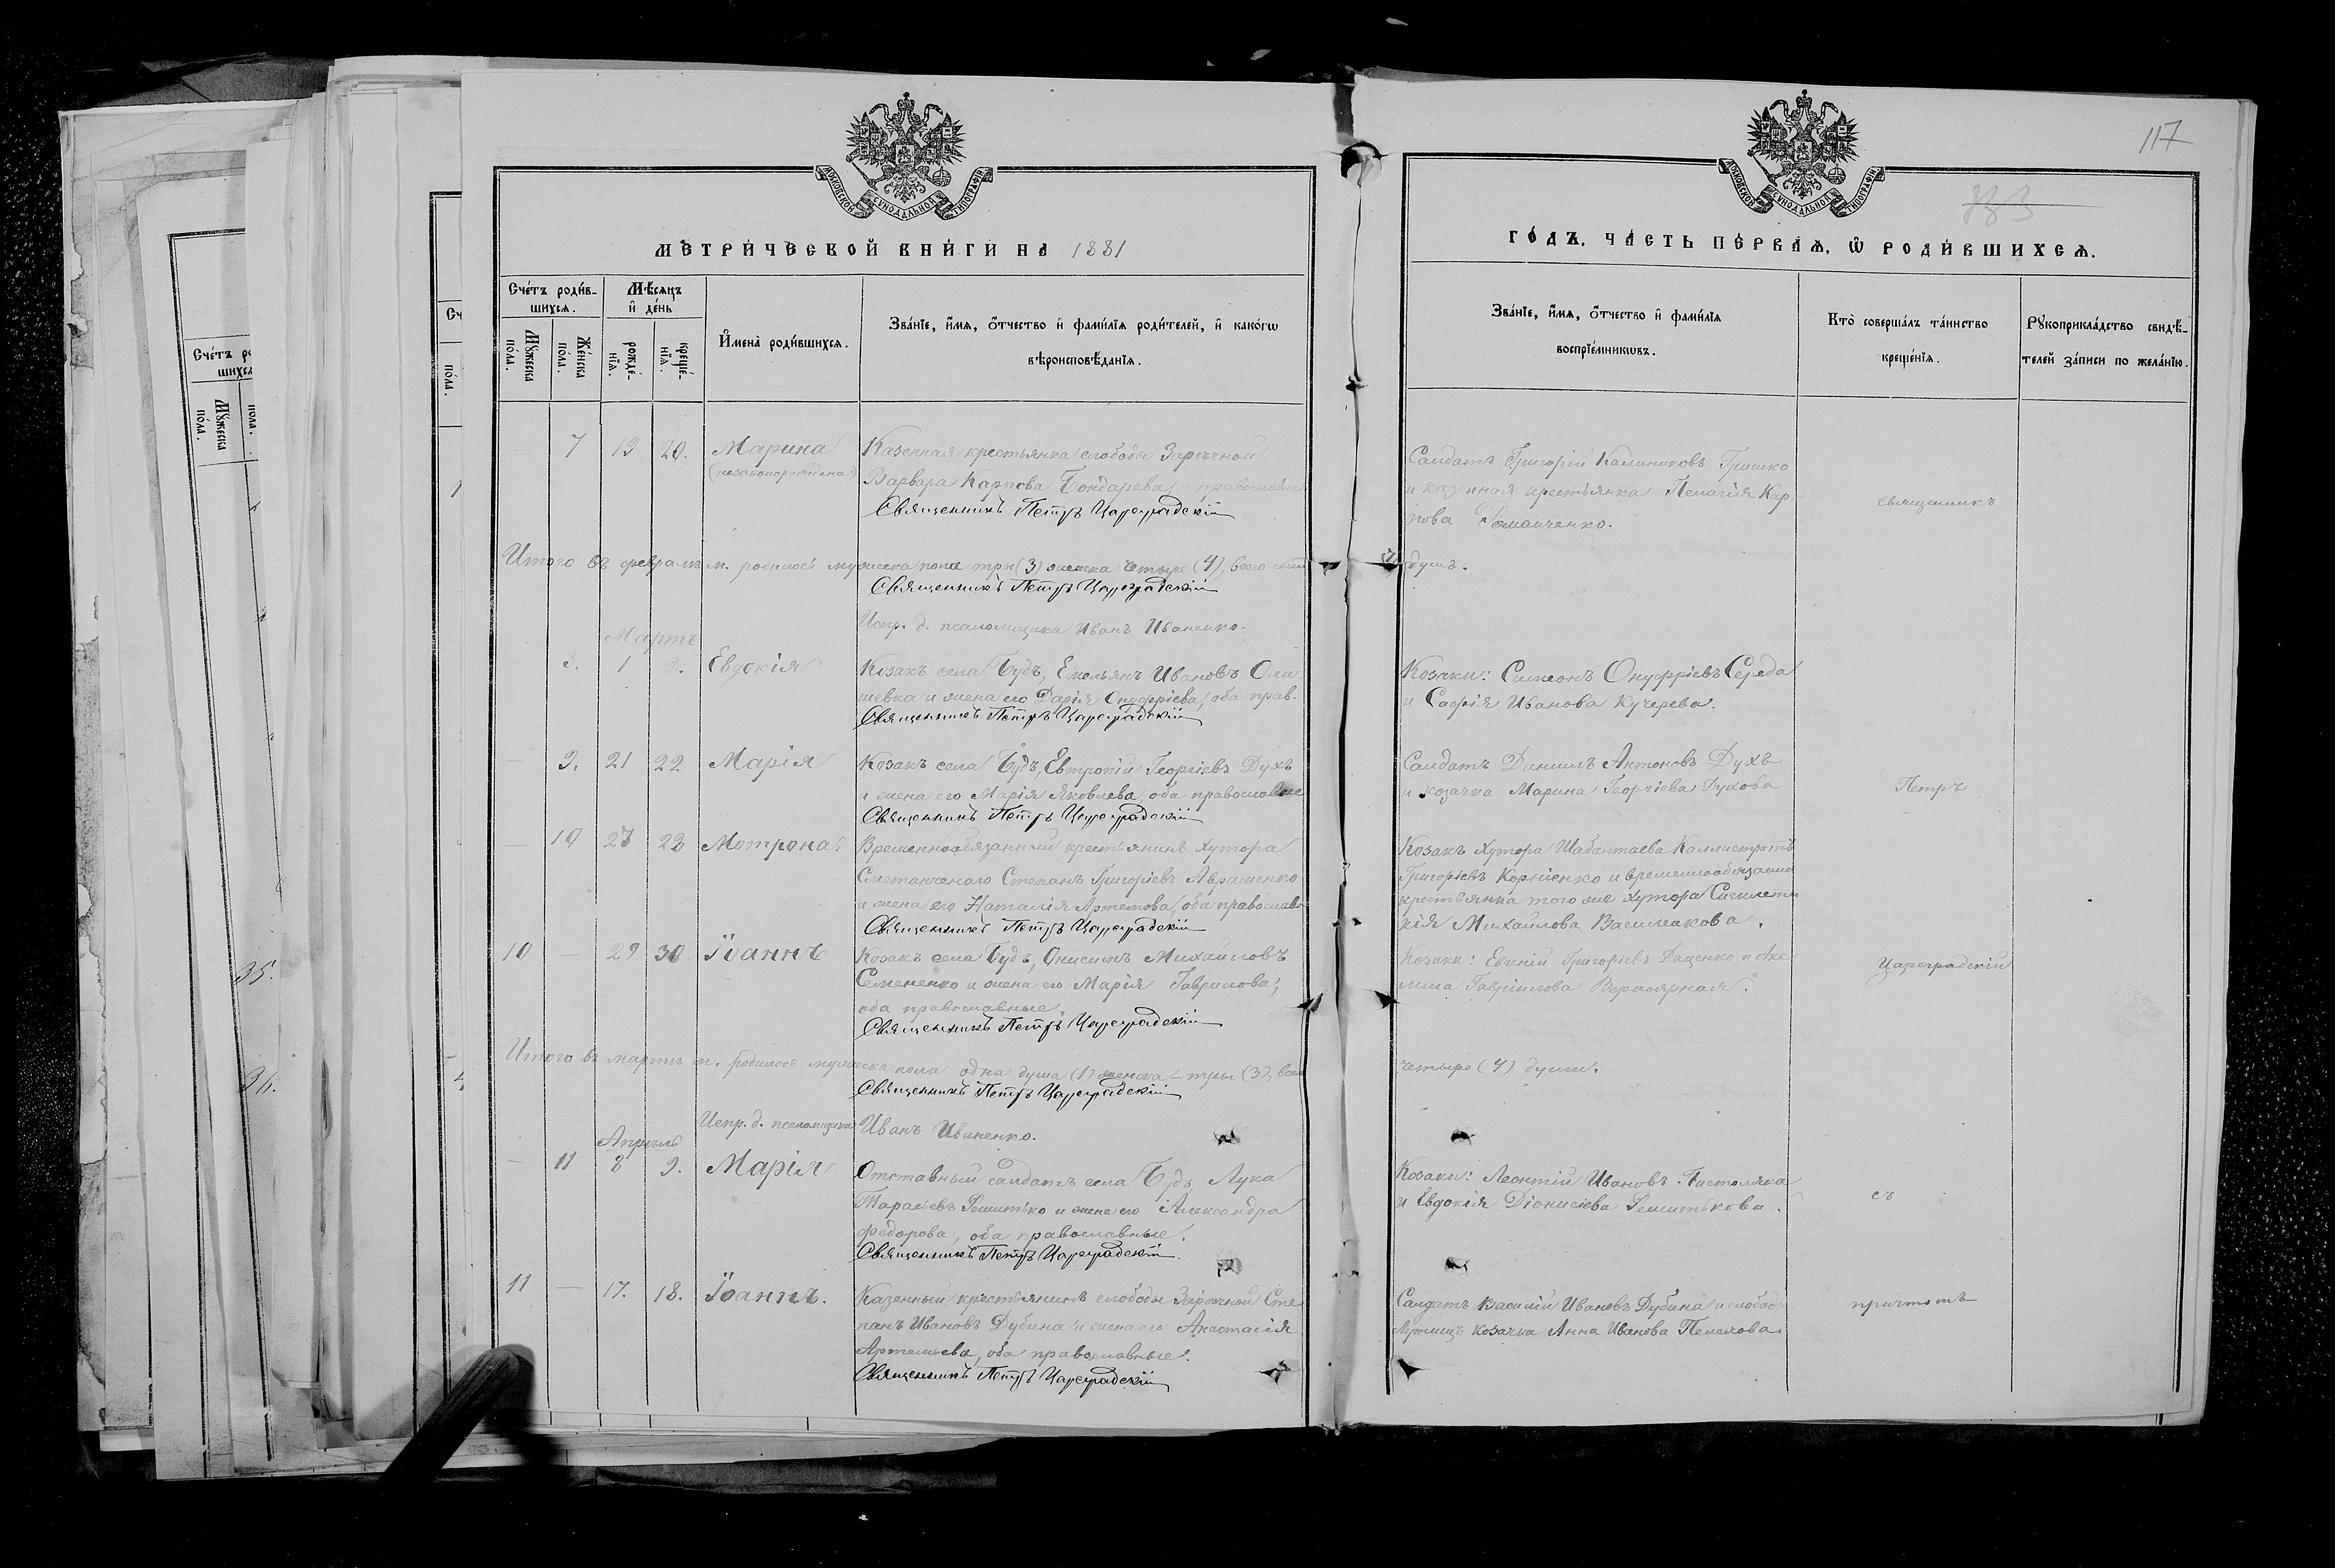 117
МОСКОВСКОЙ СѴНОДАЛЬНОЙ ТИПОГРАФІИ
МОСКОВСКОЙ СѴНОДАЛЬНОЙ ТИПОГРАФІИ
МЕТРИЧЕСКОЙ КНИГИ НА 1881
ГОДЪ, ЧАСТЬ ПЕРВАЯ, Ѿ РОДИВШИХСЯ.
Счетъ родив-шихся.
Мѣсяцъ и день
Мꙋжеска пола.
Женска пола.
рожде-нїя.
креще-нїя.
Имена родившихся.
Званїе, имя, отчество и фамилїя родителей, и какогѡ
вѣроисповѣданїя.
Званїе, имя, отчество и фамилїя
воспрїемникѡвъ.
Кто совершалъ таинство
крещенїя.
Рꙋкоприкладство свидѣ-
телей записи по желанїю.
7 19 20. Марина Казенная крестьянка слободы Заречной
(незаконорожденна) Варвара Карпова Бондарева православна
Священникъ Петръ Цареградскій
Солдатъ Григорій Калиниковъ Гришко
и казенная крестьянка Пелагія Кар-
пова Романченко.
священникъ
Итого въ февралѣ м. родилось мужеска пола три (3) женска четыре (4), всего семь
душъ.
Священникъ Петръ Цареградскій
Испр. д. псаломщика Иванъ Иваненко.
Мартъ
8. 1 2. Евдокія Козакъ села Будъ, Емельянъ Ивановъ Оли
шевка и жена его Дарія Онуфріева, оба прав.
Священникъ Петръ Цареградскій
Козаки: Симеонъ Онуфріевъ Середа
и Софія Иванова Кучерева.
— 9. 21 22 Марія Козакъ села Будъ, Евтропій Георгіевъ Духъ
и жена его Марія Яковлева, оба православные
Священникъ Петръ Цареградскій
Солдатъ Даниилъ Антоновъ Духъ
и козачка Марина Георгіева Духова
Петръ
— 10 27 28 Мотрона Временнообязанный крестьянинъ хутора
Степанъ Григоріевъ Авраменко
и жена его Наталія Артемова, оба православн
Священникъ Петръ Цареградскій
Козакъ хутора Шабалтаева Каллистратъ
Григоріевъ Корніенко и временнообязанна
крестьянка того же хутора Синклети
кія Михайлова Василчакова.
10 — 29 30 Іоаннъ Козакъ села Будъ, Онисимъ Михайловъ
Семененко и жена его Марія Гаврилова,
оба православные.
Священникъ Петръ Цареградскій
Козаки: Евгеній Григоріевъ Даценко и Аке
лина Гавріилова
Цареградскій
Итого въ мартѣ м. родилось мужеска пола одна душа (1) женска — три (3), всего
четыре (4) души.
Священникъ Петръ Цареградскій
Испр. д. псаломщика Иванъ Иваненко.
Апрѣль
— 11 8 9. Марія Отставный солдатъ села Будъ Лука
Тарасіевъ Решитько и жена его Александра
Федорова, оба православные.
Священникъ Петръ Цареградскій.
Козаки: Леонтій Ивановъ
и Евдокія Діонисіева Решитькова.
съ
11 — 17. 18. Іоаннъ. Казенный крестьянинъ слободы Заречной Сте
панъ Ивановъ Дубина и жена его Анастасія
Артемьева, оба православные.
Священникъ Петръ Цареградскій
Солдатъ Василій Ивановъ Дубина и слободы
козачка Анна Иванова
причтомъ
Счетъ ро
шихся
Мꙋжеска пола.
пола.
Сч
пола.
35.